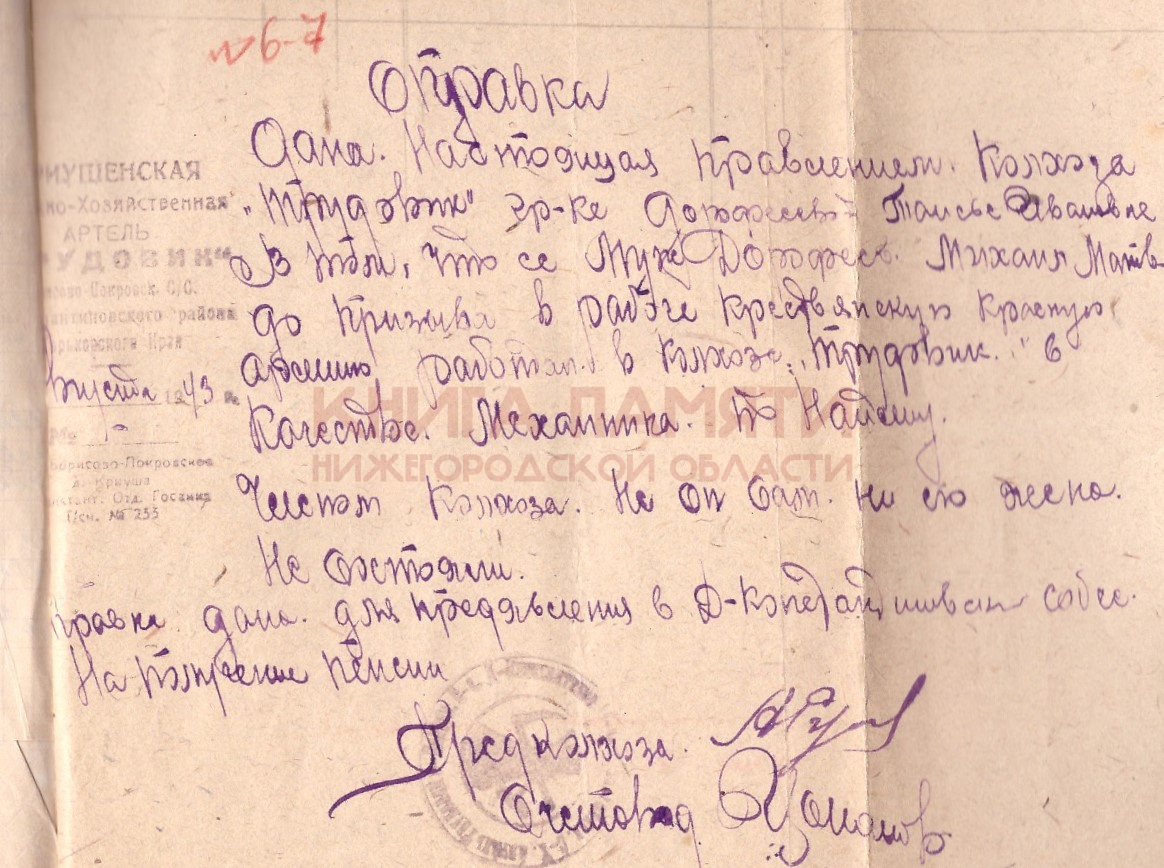 № 6-7
Справка
Дана. Настоящая Правлением. Колхоза
"Трудовик" гр-ке Дорофеевой Таисье Ивановне
В том, что ее Муж Дорофеев. Михаил Матв
до призыва в рабоче крествянскую красную
армию работал в колхозе "Трудовик." в
Качестве. Механника. По Найему.
Членом Колхоза. Не он Сам. ни его жена.
Не состояли.
правка дана. для предявления в Д-Константиновск собес.
На получение пенсии
Пред колхоза.
Счетовод
МУШЕНСКАЯ
но-Хозяйственная
АРТЕЛЬ
УДОВИК"
Покровск. С/С.
антиновского района
рьковского Края
Августа 1943 г.
Борисово-Покровское
д. Ермуша
Отд. Госбанка
№ 255
КНИГА ПАМЯТИ
НИЖЕГОРОДСКОЙ ОБЛАСТИ